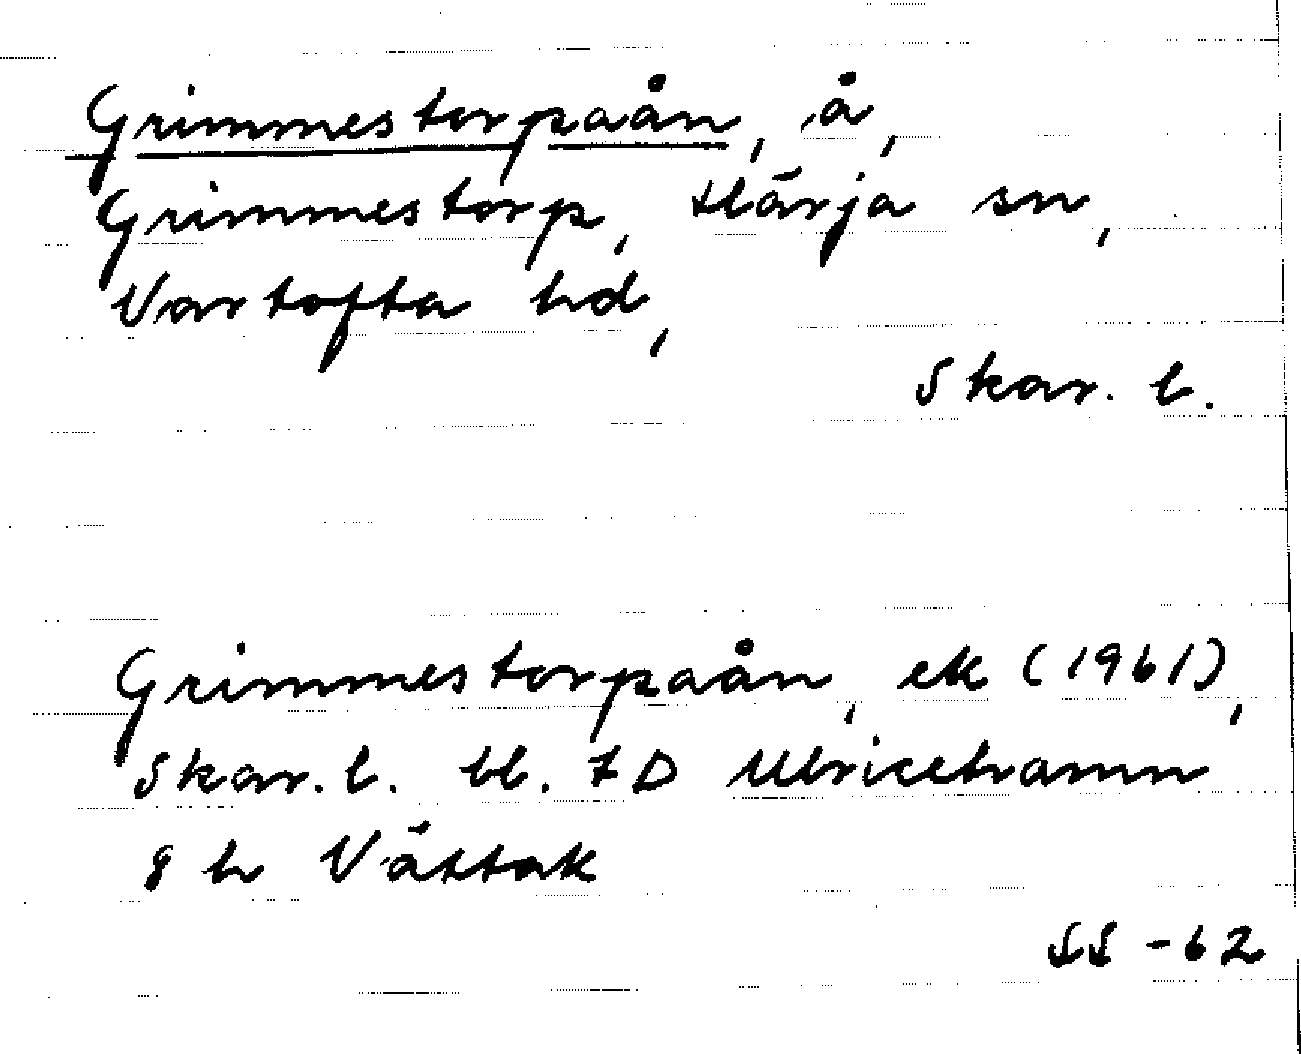 Grimmestorpaån, å,
Grimmestorp, Härja sn,
Vartofta hd,
Skar. l.
Grimmestorpaån, ek (1961),
Skar. l. bl. 7D Ulricehamn
8 h Vättak
SS -62